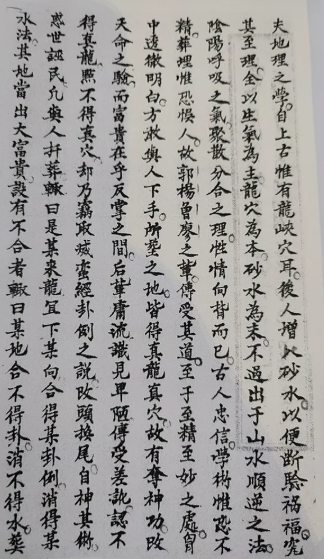 夫地理之學自上古惟有龍峽穴耳後人增此砂水以便断驗禍福究
其至理全以生氣為主龍穴為本砂水為末不過出于山水順逆之法
陰陽呼吸之氣聚散分合之理性情向背而已古人忠信學術惟恐不
精葬埋惟恐悞人故郭楊曾廖之輩傳受其道至于至精至妙之處胷
中透徹明白方敢與人下手所塋之地皆得真龍真穴故有奪神功改
天命之驗而富貴在乎反掌之間后輩庸流識見卑陋傳受差訛認不
得真龍㸃不得真穴却乃竊取滅蛮經卦例之說改頭換尾自神其術
惑世誣民凢與人扦葬輙曰是某来龍宜下某向合得某卦例消得某
水法其地當出大富貴設有不合者輙曰某地合不得卦消不得水葬